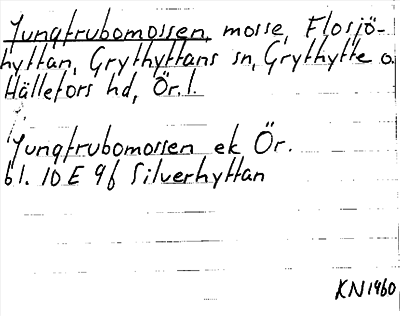 Jungfrubomossen, mosse, Flosjö-
hyttan, Grythyttans sn, Grythytte o.
Hällefors hd, Ör. l.
Jungfrubomossen ek Ör.
bl. 10 E 9f Silverhyttan
KN1960